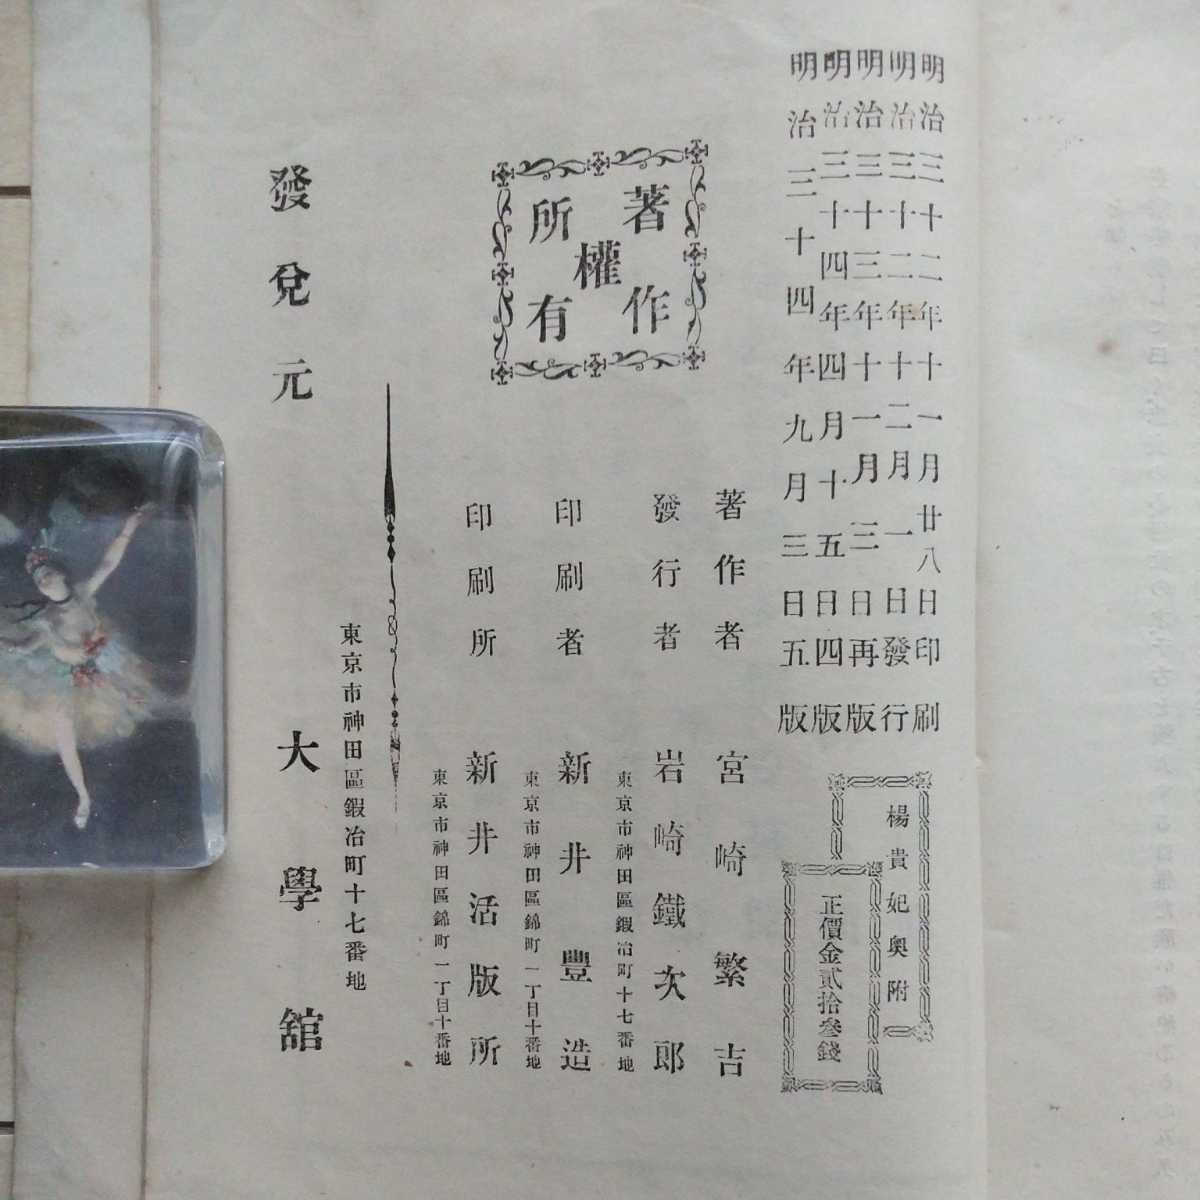 明治三十二年十一月廿八日印刷
明治三十二年十二月一日發行
明治三十三年十一月三日再版
明治三十四年四月十五日四版
明治三十四年九月三日五版
楊貴妃奧附
正價金貳拾參錢
著作權所有
著作者 宮崎繁吉
發行者 岩崎鐵次郎
東京市神田區鍜冶町十七番地
印刷者 新井豐造
東京市神田區錦町一丁目十番地
印刷所 新井活版所
東京市神田區錦町一丁目十番地
東京市神田區鍜冶町十七番地
發兌元 大學舘